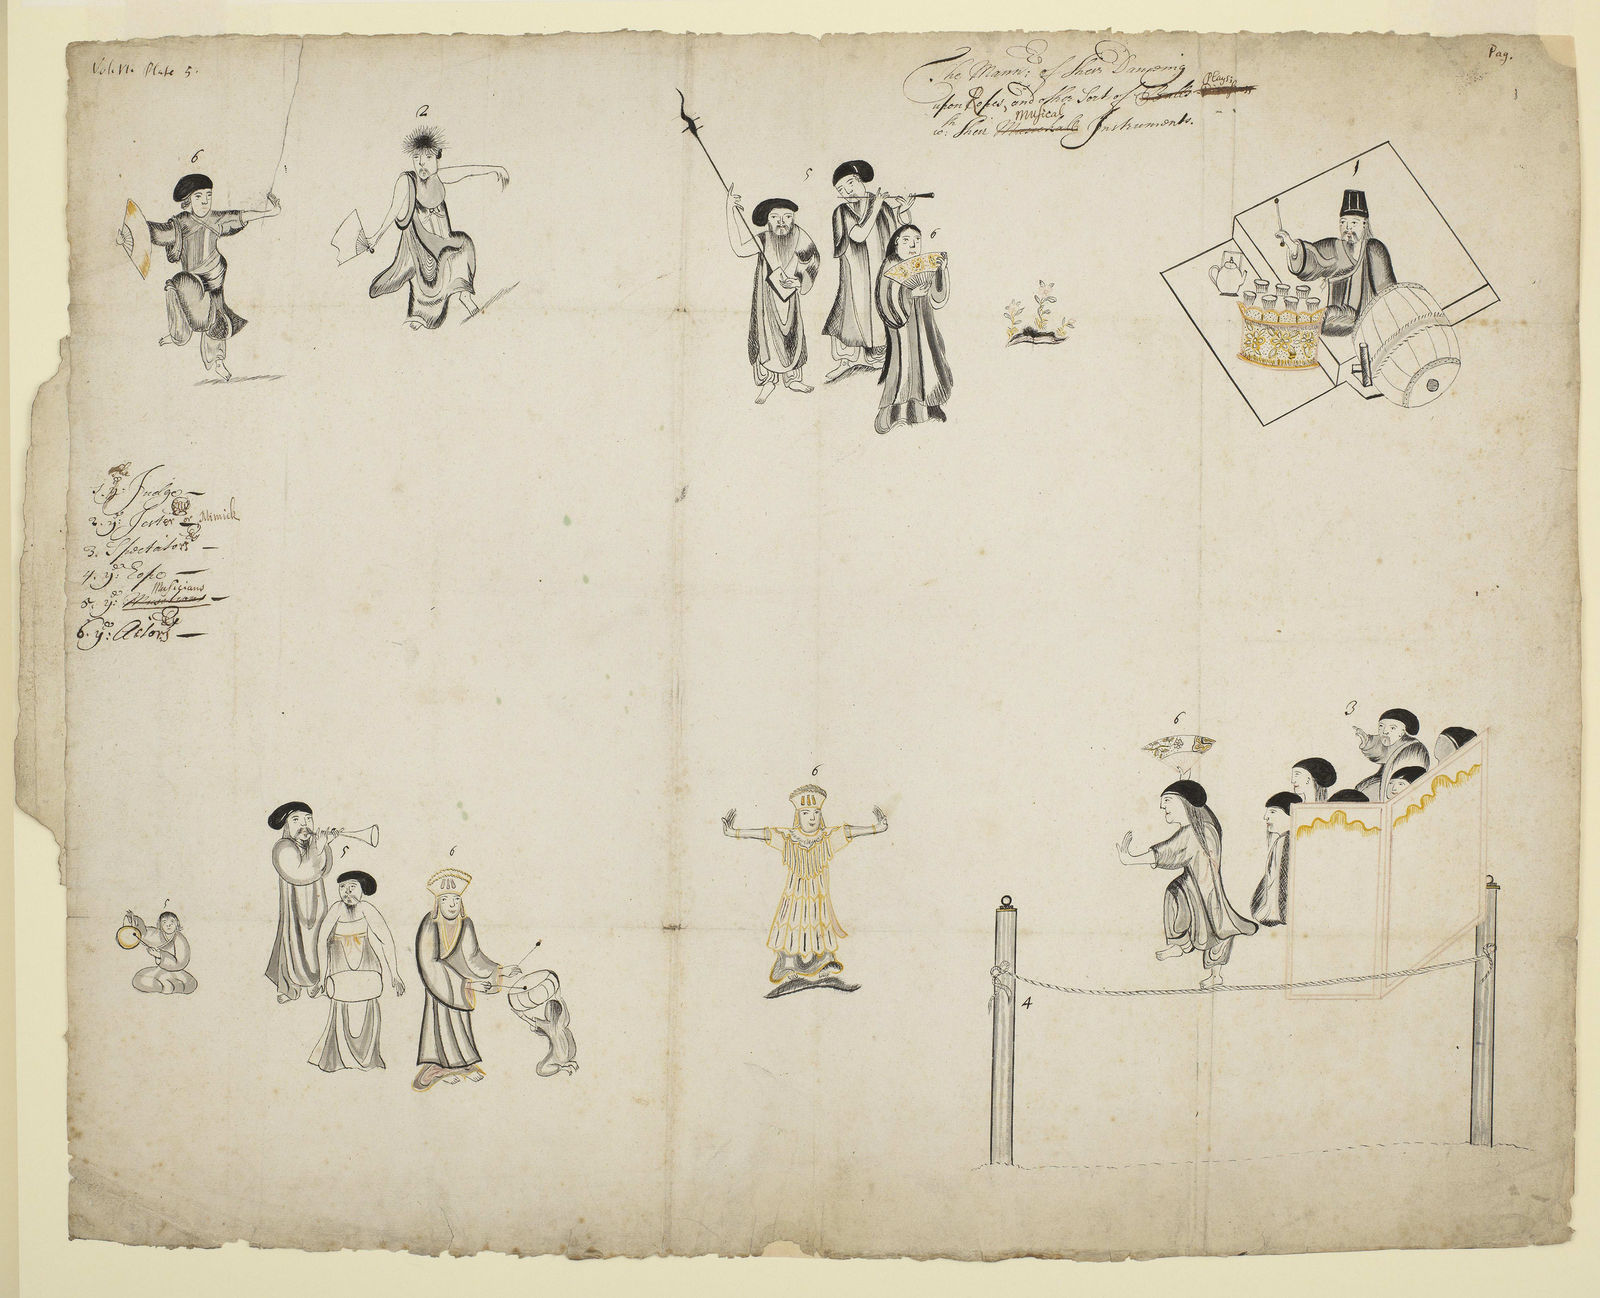 Vol. VI. Plate 5.
Pag.
The Mann: of their Dancing
Plays;
upon Ropes, and other Sort of Balls
Musical
wth: their Musicall Instruments.
6
2
5
6
1
the
1. ye: Judge —
2. ye: Jester or Mimick
3. Spectators —
4. ye: Rope —
Musicians
5. ye: Musicians —
6. ye: Actors —
6
3
6
5
6
5
4